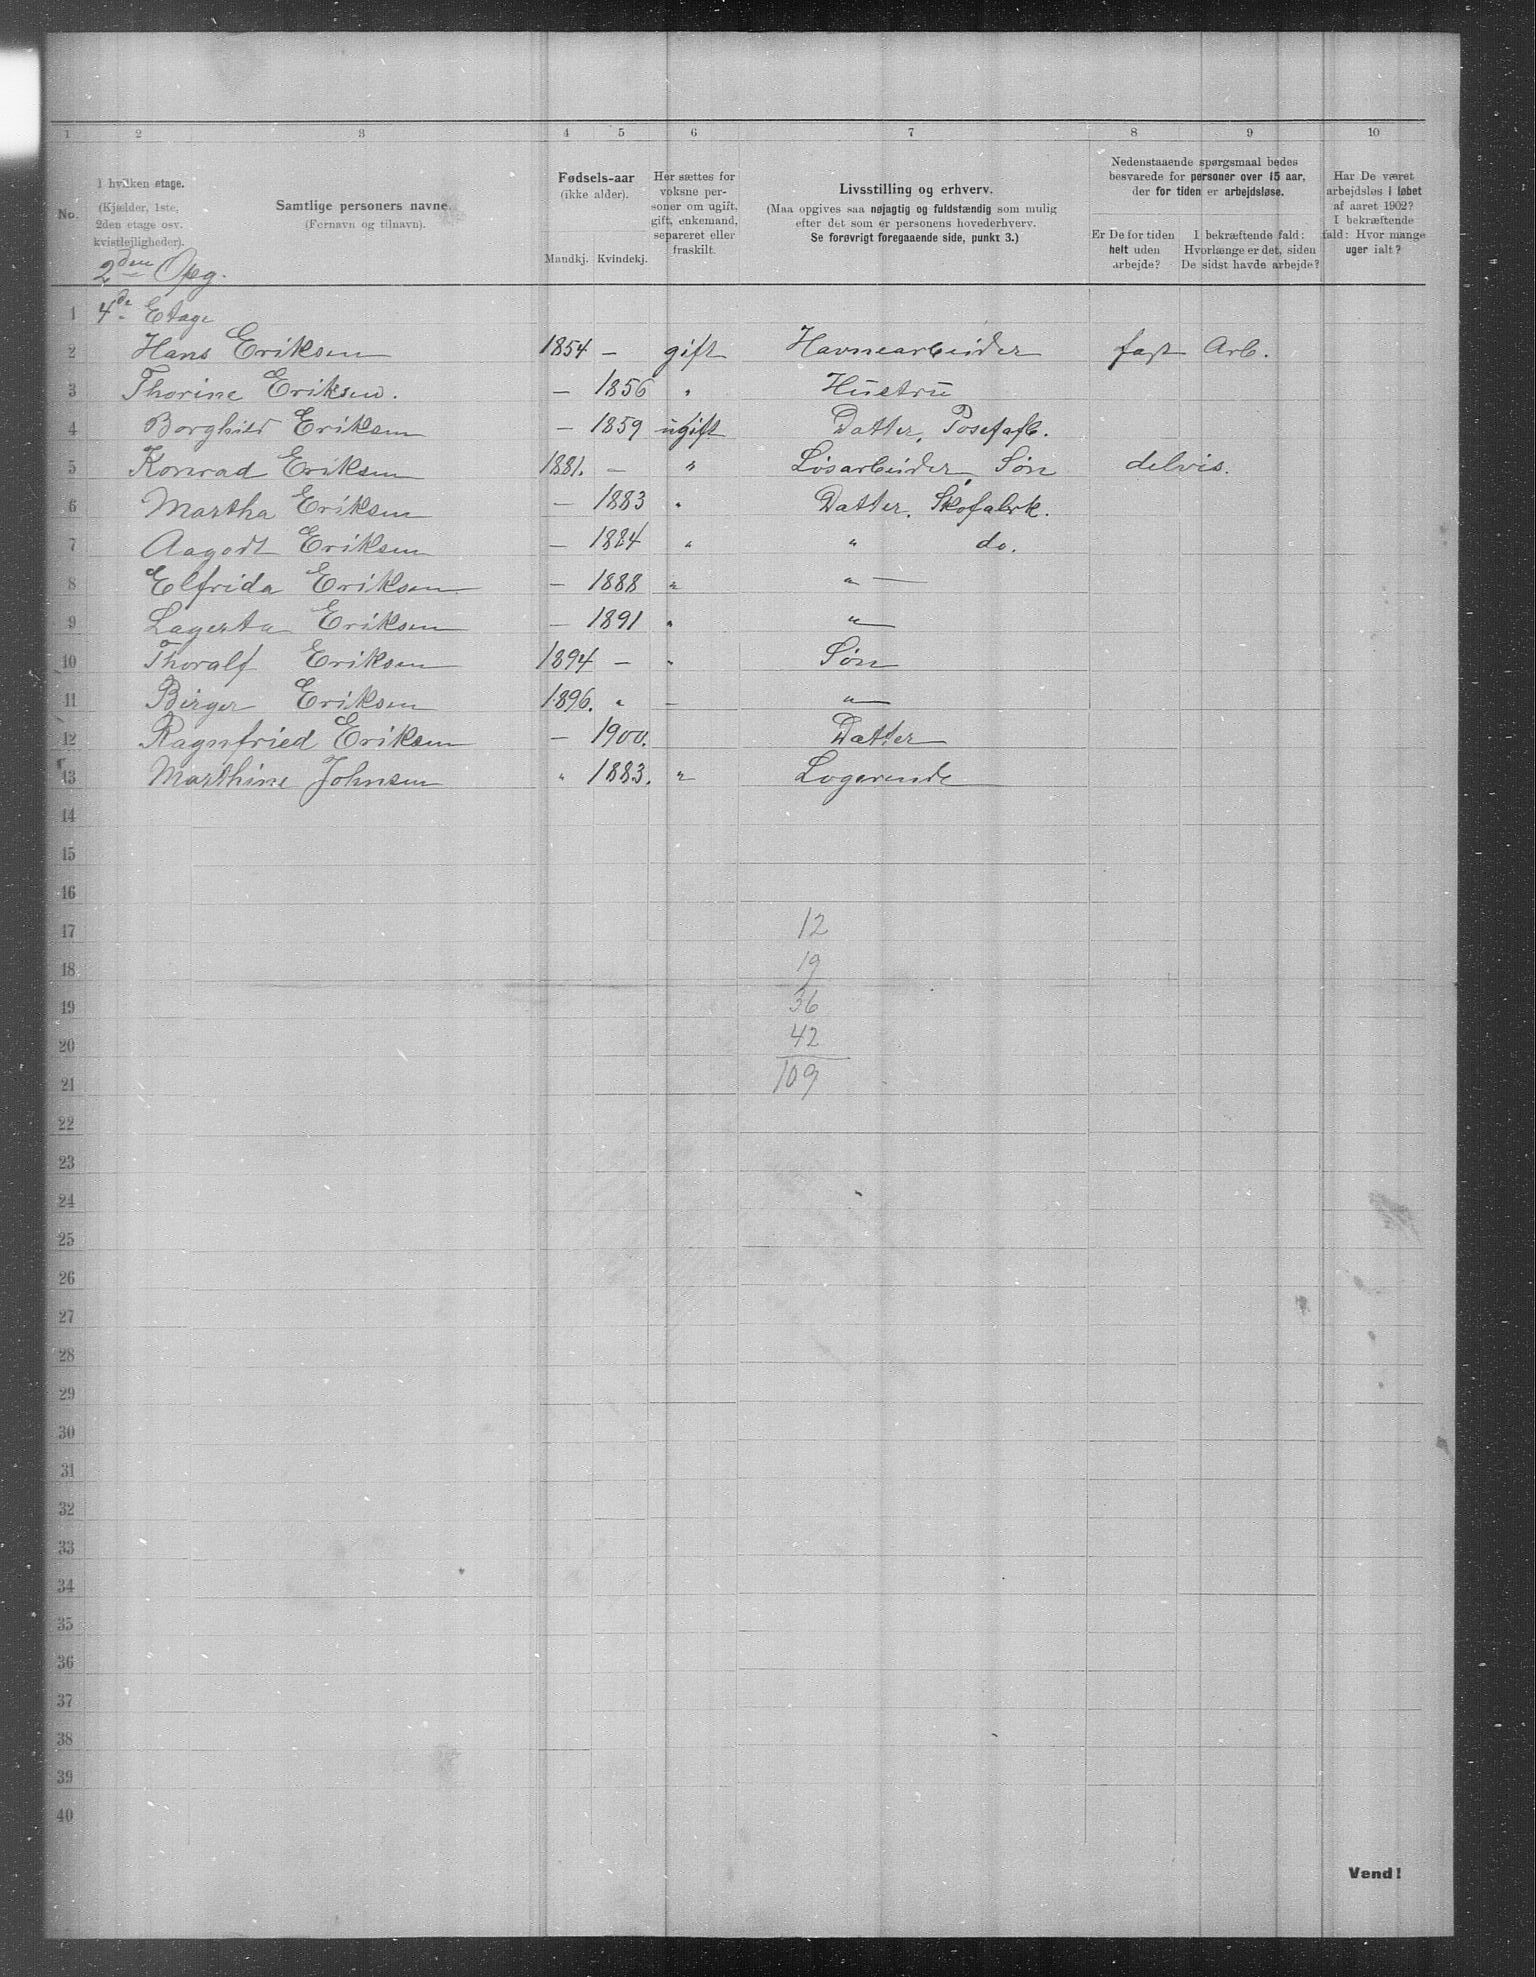 1 2 3 4 5 6 7 8 9 10
No.
I hvilken etage.
(Kjælder, 1ste,
2den etage osv.
kvistlejligheder).
Samtlige personers navne
(Fornavn og tilnavn).
Fødsels-aar
(ikke alder).
Mandkj. Kvindekj.
Her sættes for
voksne per-
soner om ugift,
gift, enkemand,
separeret eller
fraskilt.
Livsstilling og erhverv.
(Maa opgives saa nøjagtig og fuldstændig som mulig
efter det som er personens hovederhverv.
Se forøvrigt foregaaende side, punkt 3.)
Nedenstaaende spørgsmaal bedes
besvarede for personer over 15 aar,
der for tiden er arbejdsløse.
Er De for tiden
helt uden
arbejde?
I bekræftende fald:
Hvorlænge er det, siden
De sidst havde arbejde?
Har De været
arbejdsløs i løbet
af aaret 1902?
I bekræftende
fald: Hvor mange
uger ialt?
2den Opg.
1 4de Etage
2 Hans Eriksen 1854 — gift Havnearbeider fast Arb.
3 Thorine Eriksen. — 1856 " Hustru
4 Borghild Eriksen — 1859 ugift Datter, Posefafb.
5 Konrad Eriksen 1881. — " Løsarbeider, Søn delvis.
6 Martha Eriksen — 1883 " Datter, Skofabrk.
7 Aagodt Eriksen — 1884 " " do.
8 Elfrida Eriksen — 1888 " " —
9 Lagerta Eriksen — 1891 " "
10 Thoralf Eriksen 1894 — " Søn
11 Birger Eriksen 1896. " — "
12 Ragnfried Eriksen — 1900. Datter
13 Marthine Johnsen " 1883. " Logerende
14
15
16
17 12
18 19
19 36
20 42
21 109
22
23
24
25
26
27
28
29
30
31
32
33
34
35
36
37
38
39
40
Vend!